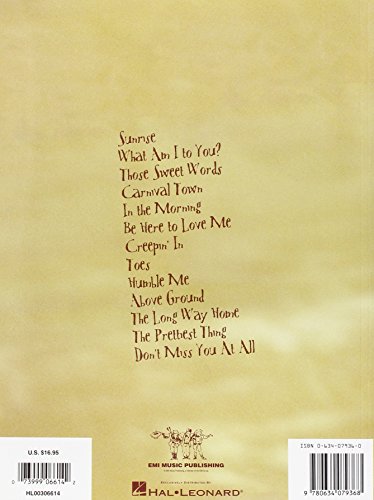 Sunrise
What Am I to You?
Those Sweet Words
Carnival Town
In the Morning
Be Here to Love Me
Creepin' In
Toes
Humble Me
Above Ground
The Long Way Home
The Prettiest Thing
Don't Miss You At All
EMI MUSIC PUBLISHING
EXCLUSIVELY DISTRIBUTED BY
HAL•LEONARD
U.S. $16.95
0 73999 06614 2
HL00306614
ISBN 0-634-07936-0
9 780634 079368